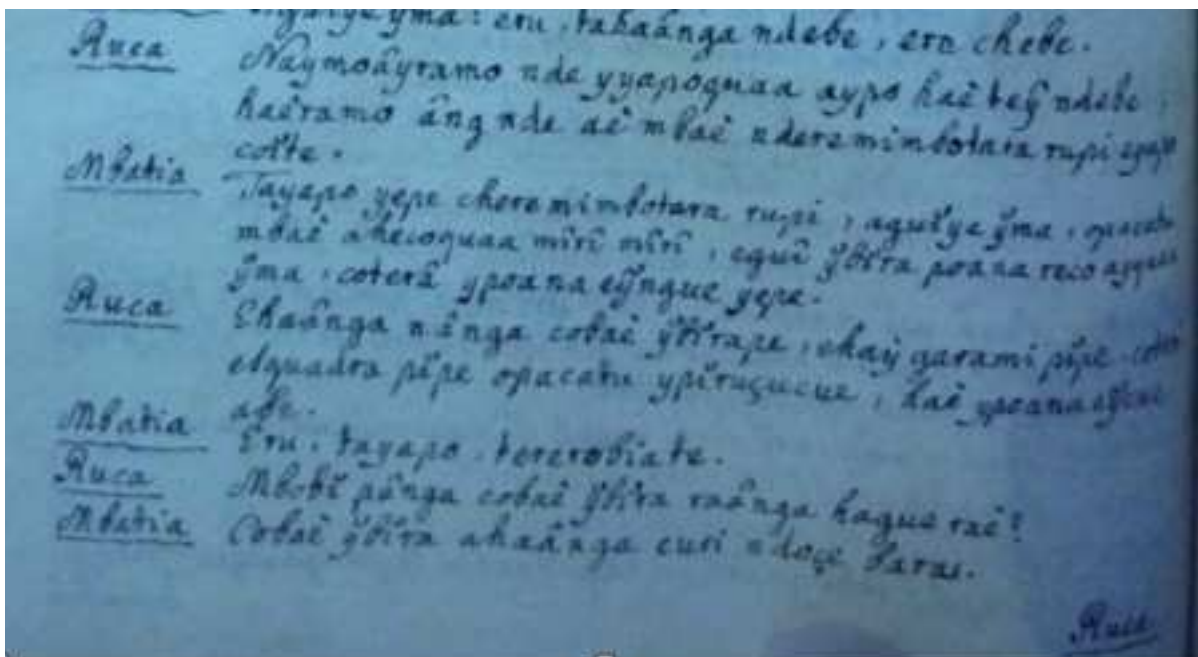 eru, tahaânga ndebe, eru chebe.
Ruca Naỹmoâyramo nde yyapoguaa aypo haè teỹ ndebe,
haèramo âng nde aè mbaè nderemimbotara rupi eyapo
coĩte.
Mbatia Tayapo yepe cheremimbotara rupi, aguĩye ỹma, opacatu
mbaè ahecoguaa mĩrĩ mĩrĩ, eguĩ ỹbĩra poana reco ayquaa
ỹma, coterâ ypoana eỹngue yepe.
Ruca Ehaânga nânga cobaè ỹbĩrape, ehaỹ garami pĩpe, coterâ
elquadra pĩpe opacatu ypĩruçucue, haè ypoana eỹcue
abe.
Mbatia Eru, tayapo, tererobĩate.
Ruca Mbobĩ pânga cobaè ỹbĩra raânga hague raè?
Mbatia Cobaè ỹbĩra ahaânga curi ndoçe baras.
Ruca